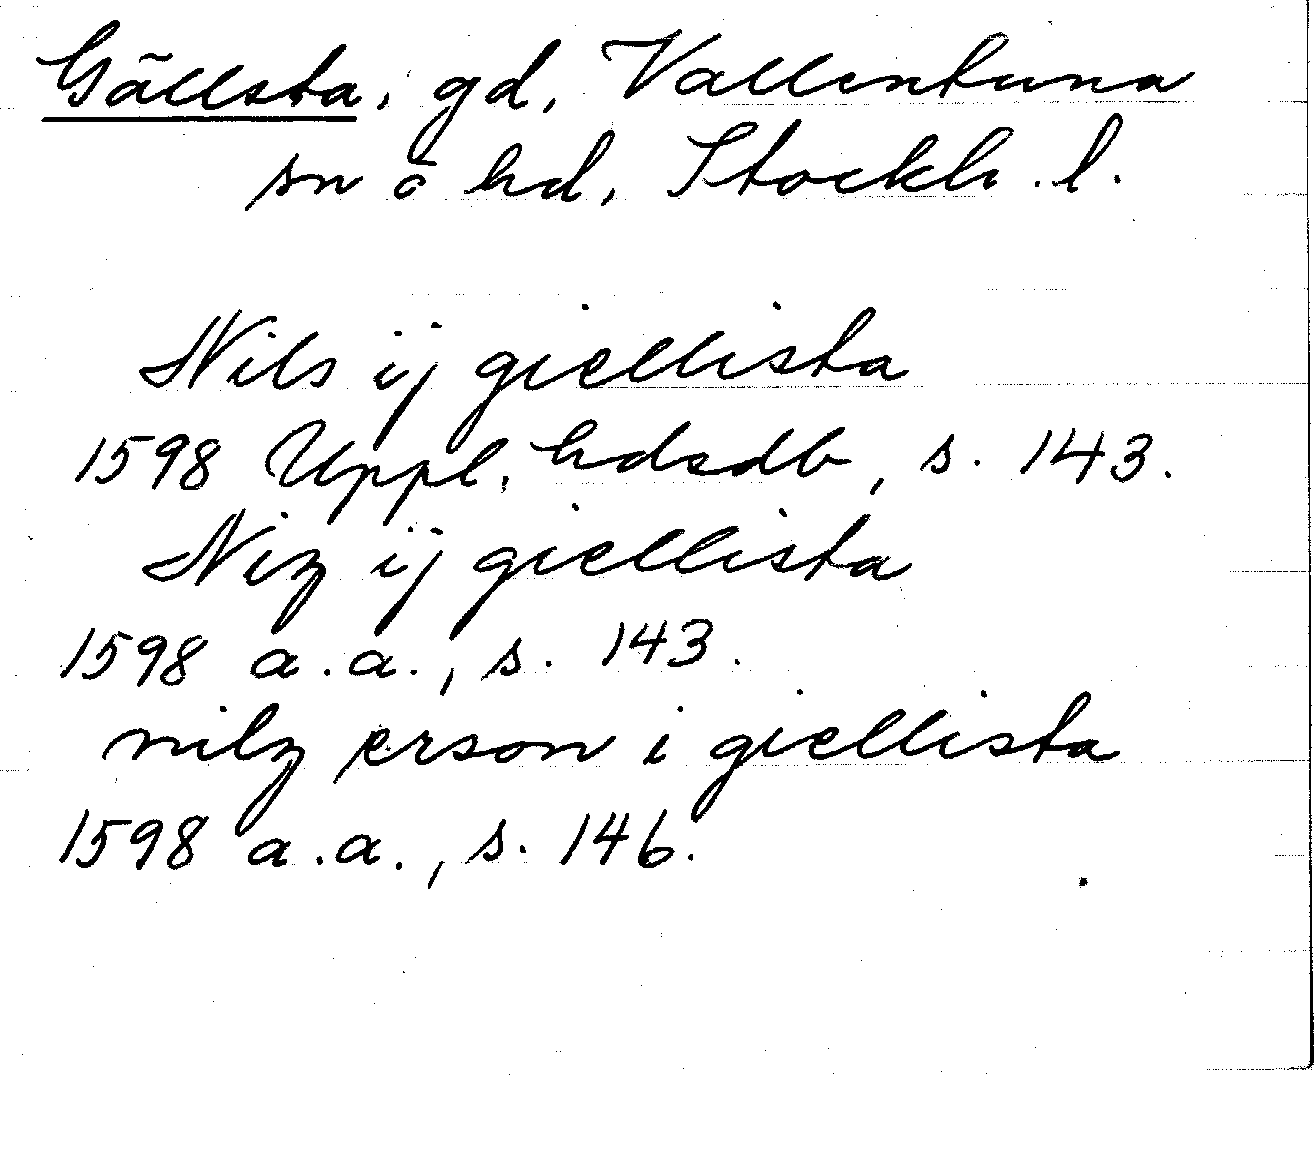 Gällsta, gd, Vallentuna
sn o hd, Stockh. l.
Nils ij giellista
1598 Uppl. hdsdb, s. 143.
Niz ij giellista
1598 a.a., s. 143.
nilz person i giellista
1598 a.a., s. 146.